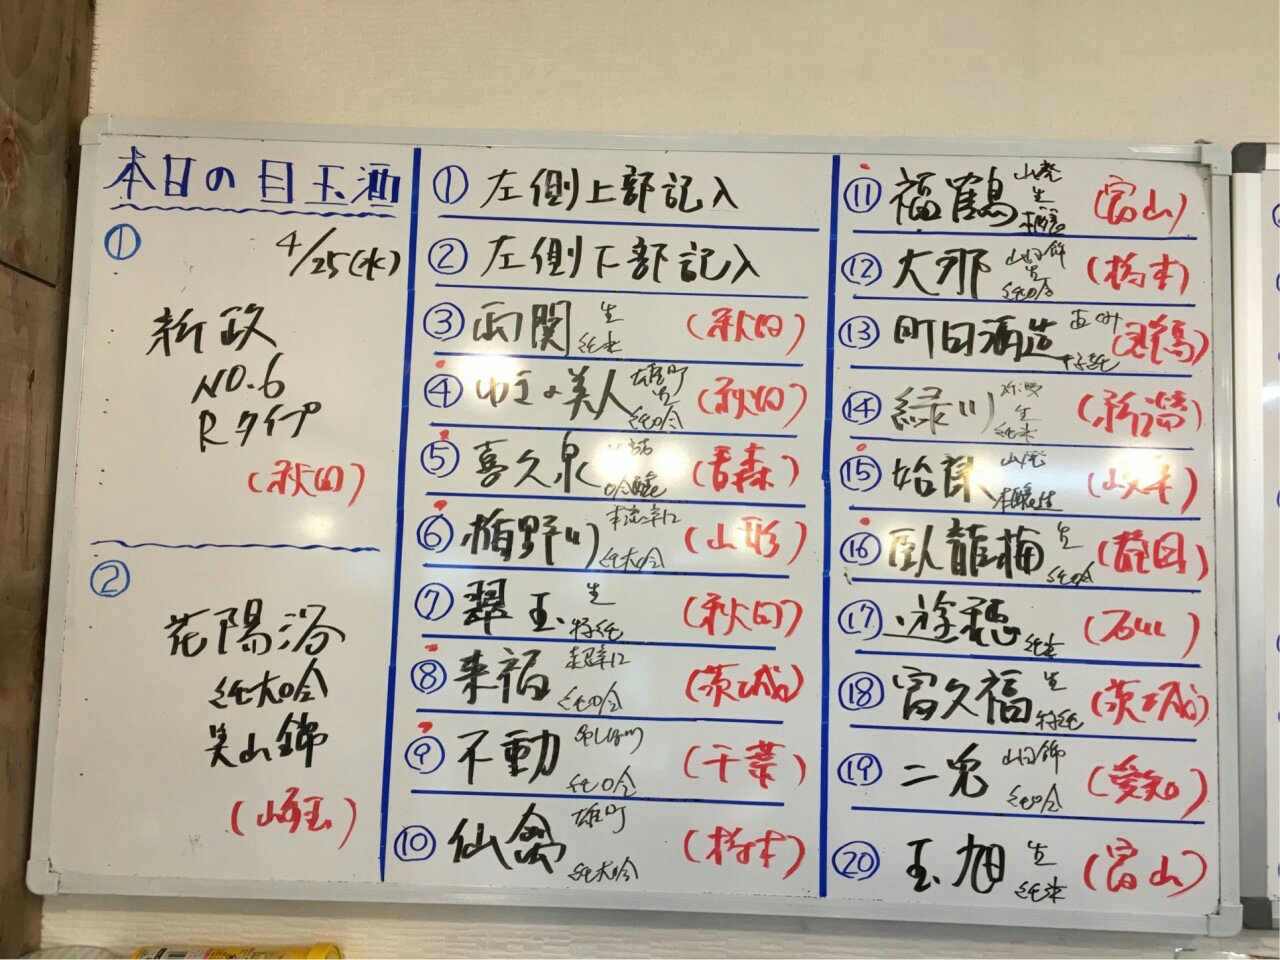 本日の目玉酒
① 4/25(水)
新政
NO.6
Rタイプ
(秋田)
②
花陽浴
純大吟
美山錦
(埼玉)
① 左側上部記入
② 左側下部記入
③ 両関 生 純米 (秋田)
④ ゆきの美人 雄町 生 純吟 (秋田)
⑤ 喜久泉 吟醸 (青森)
⑥ 楯野川 本流辛口 純大吟 (山形)
⑦ 翠玉 生 特純 (秋田)
⑧ 来福 超辛口 純吟 (茨城)
⑨ 不動 吊しぼり 純吟 (千葉)
⑩ 仙禽 雄町 純大吟 (栃木)
⑪ 福鶴 山廃 生 本醸 (富山)
⑫ 大那 山田錦 生 純吟 (栃木)
⑬ 町田酒造 特純 (群馬)
⑭ 緑川 生 純米 (新潟)
⑮ 始禄 山廃 本醸生 (岐阜)
⑯ 臥龍梅 生 純吟 (静岡)
⑰ 遊穂 純米 (石川)
⑱ 富久福 生 特純 (茨城)
⑲ 二兎 山田錦 純吟 (愛知)
⑳ 玉旭 生 純米 (富山)